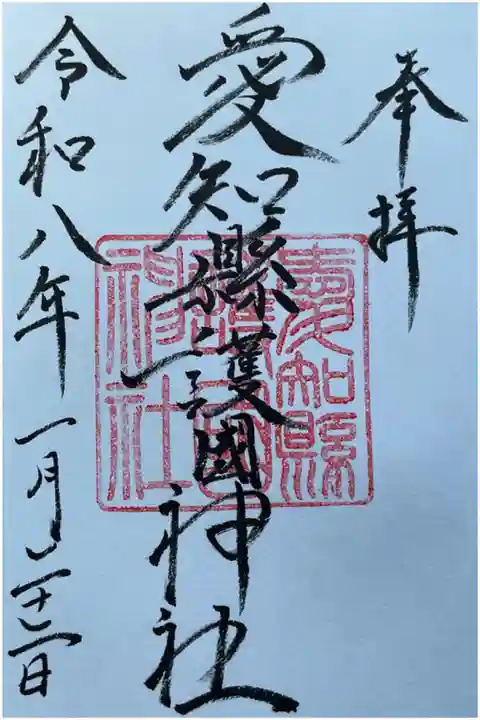 奉拝
愛知縣護國神社
愛知縣
護國
神社
令和八年一月二十二日